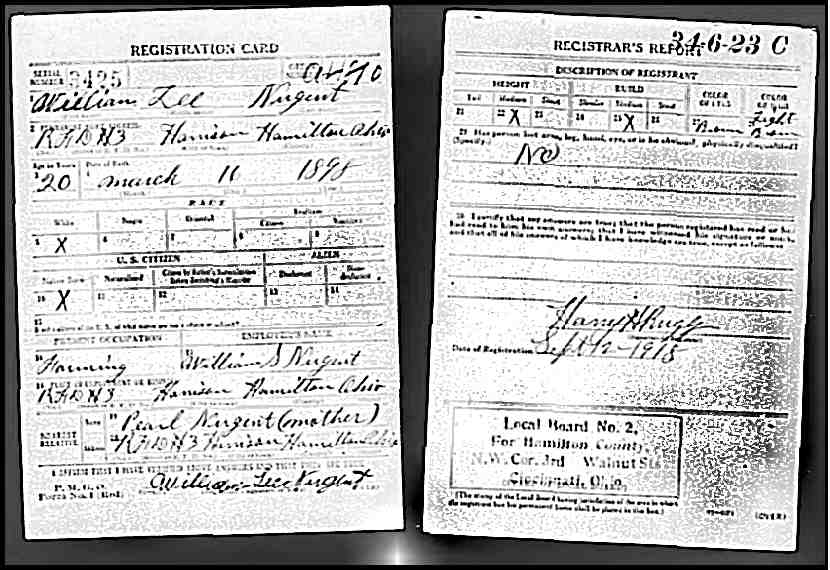 REGISTRATION CARD
SERIAL NUMBER 3425
William Lee Nugent
RFD #3 Harrison Hamilton Ohio
Age in Years Date of Birth
20 March 16 1898
RACE
White Negro Oriental Indian
Citizen
5 X 6 7 8 9
U. S. CITIZEN ALIEN
Native Born Naturalized Citizen by Father's Naturalization Before Registrant's Majority Declarant Non-declarant
10 X 11 12 13 14
15
PRESENT OCCUPATION EMPLOYER'S NAME
Farming William S Nugent
RFD #3 Harrison Hamilton Ohio
NEAREST RELATIVE Name Pearl Nugent (mother)
Address RFD #3 Harrison Hamilton Ohio
I AFFIRM THAT I HAVE VERIFIED ABOVE ANSWERS AND THAT THEY ARE TRUE
P. M. G. O.
Form No. 1 (Red) William Lee Nugent
REGISTRAR'S REPORT 34-6-23 C
DESCRIPTION OF REGISTRANT
HEIGHT BUILD COLOR OF EYES COLOR OF HAIR
Tall Medium Short Slender Medium Stout
21 22 X 23 24 25 X 26 27 Brown Light Brown
29 Has person lost arm, leg, hand, eye, or is he obviously physically disqualified?
(Specify.) No
30 I certify that my answers are true; that the person registered has read or has
had read to him his own answers; that I have witnessed his signature or mark
and that all of his answers of which I have knowledge are true, except as follows:
Date of Registration Sept 12-1918
Local Board No. 2,
For Hamilton County,
N.W. Cor. 3rd Walnut Sts
Cincinnati, Ohio.
(The stamp of the Local Board having jurisdiction of the area in which
the registrant has his permanent home shall be placed in this box.)
(OVER)